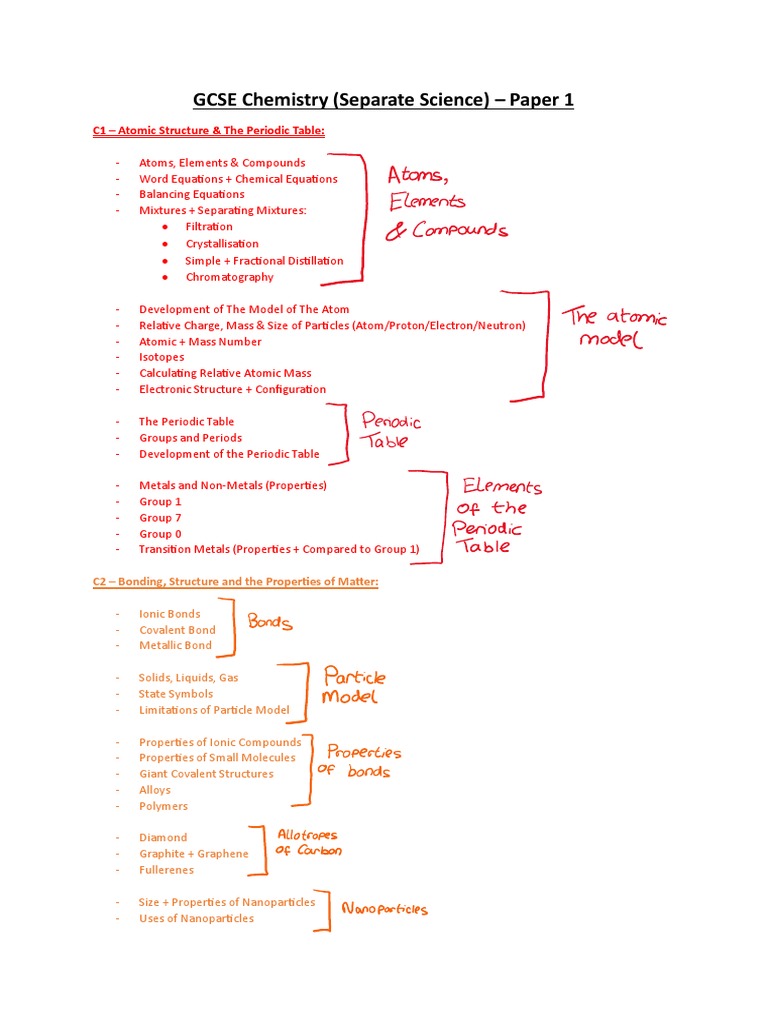 GCSE Chemistry (Separate Science) – Paper 1
C1 – Atomic Structure & The Periodic Table:
- Atoms, Elements & Compounds
- Word Equations + Chemical Equations
- Balancing Equations
- Mixtures + Separating Mixtures:
● Filtration
● Crystallisation
● Simple + Fractional Distillation
● Chromatography
Atoms,
Elements
& Compounds
- Development of The Model of The Atom
- Relative Charge, Mass & Size of Particles (Atom/Proton/Electron/Neutron)
- Atomic + Mass Number
- Isotopes
- Calculating Relative Atomic Mass
- Electronic Structure + Configuration
The atomic
model
- The Periodic Table
- Groups and Periods
- Development of the Periodic Table
Periodic
Table
- Metals and Non-Metals (Properties)
- Group 1
- Group 7
- Group 0
- Transition Metals (Properties + Compared to Group 1)
Elements
of the
Periodic
Table
C2 – Bonding, Structure and the Properties of Matter:
- Ionic Bonds
- Covalent Bond
- Metallic Bond
Bonds
- Solids, Liquids, Gas
- State Symbols
- Limitations of Particle Model
Particle
Model
- Properties of Ionic Compounds
- Properties of Small Molecules
- Giant Covalent Structures
- Alloys
- Polymers
Properties
of bonds
- Diamond
- Graphite + Graphene
- Fullerenes
Allotropes
of Carbon
- Size + Properties of Nanoparticles
- Uses of Nanoparticles
Nanoparticles